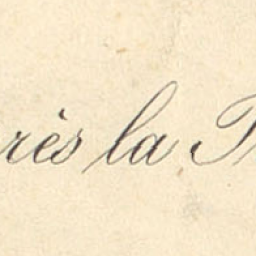 rès la